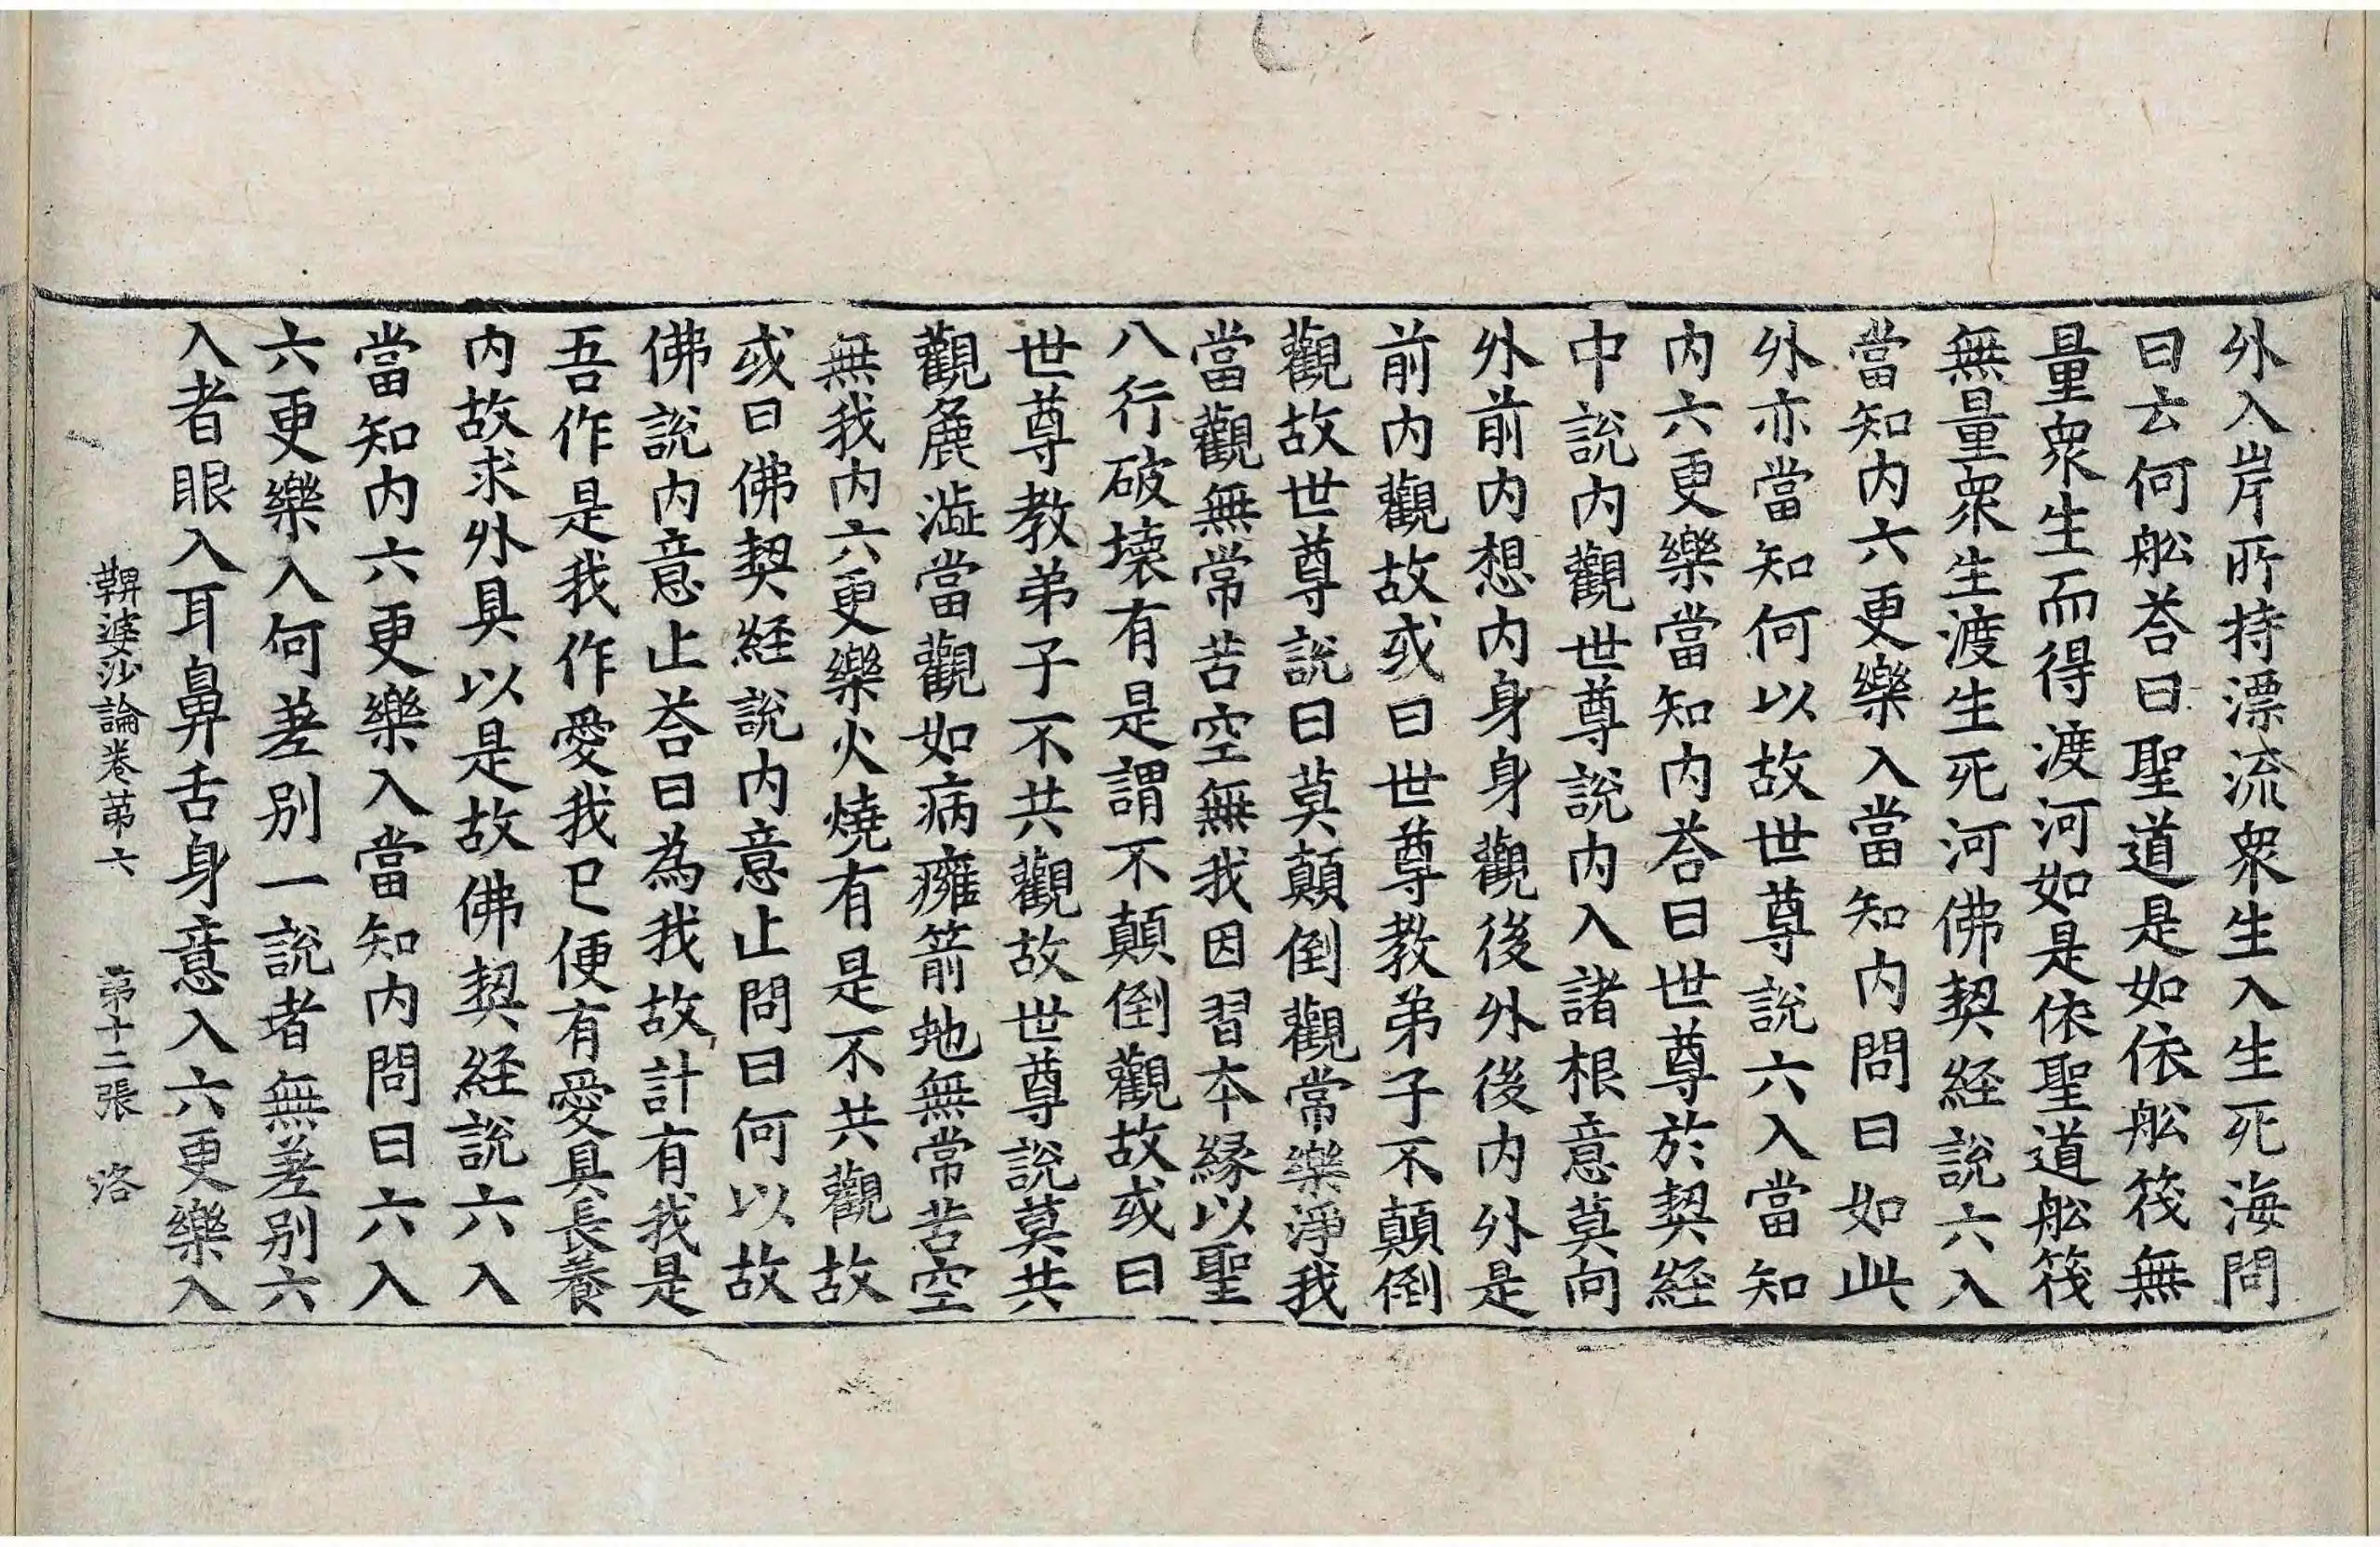 外入岸所持漂流衆生入生死海問
曰云何舩荅曰聖道是如依舩筏無
量衆生而得渡河如是依聖道舩筏
無量衆生渡生死河佛契経說六入
當知内六更樂入當知内問曰如此
外亦當知何以故世尊說六入當知
内六更樂當知内荅曰世尊於契経
中說内觀世尊說内入諸根意莫向
外前内想内身身觀後外後内外是
前内觀故或曰世尊教弟子不顛倒
觀故世尊說曰莫顛倒觀常樂淨我
當觀無常苦空無我因習本縁以聖
八行破壞有是謂不顛倒觀故或曰
世尊教弟子不共觀故世尊說莫共
觀麁澁當觀如病癰箭虵無常苦空
無我内六更樂火燒有是不共觀故
或曰佛契経說内意止問曰何以故
佛說内意止荅曰為我故計有我是
吾作是我作愛我已便有愛具長養
内故求外具以是故佛契経說六入
當知内六更樂入當知内問曰六入
六更樂入何差别一說者無差别六
入者眼入耳鼻舌身意入六更樂入
鞞婆沙論卷苐六　苐十二張　洛